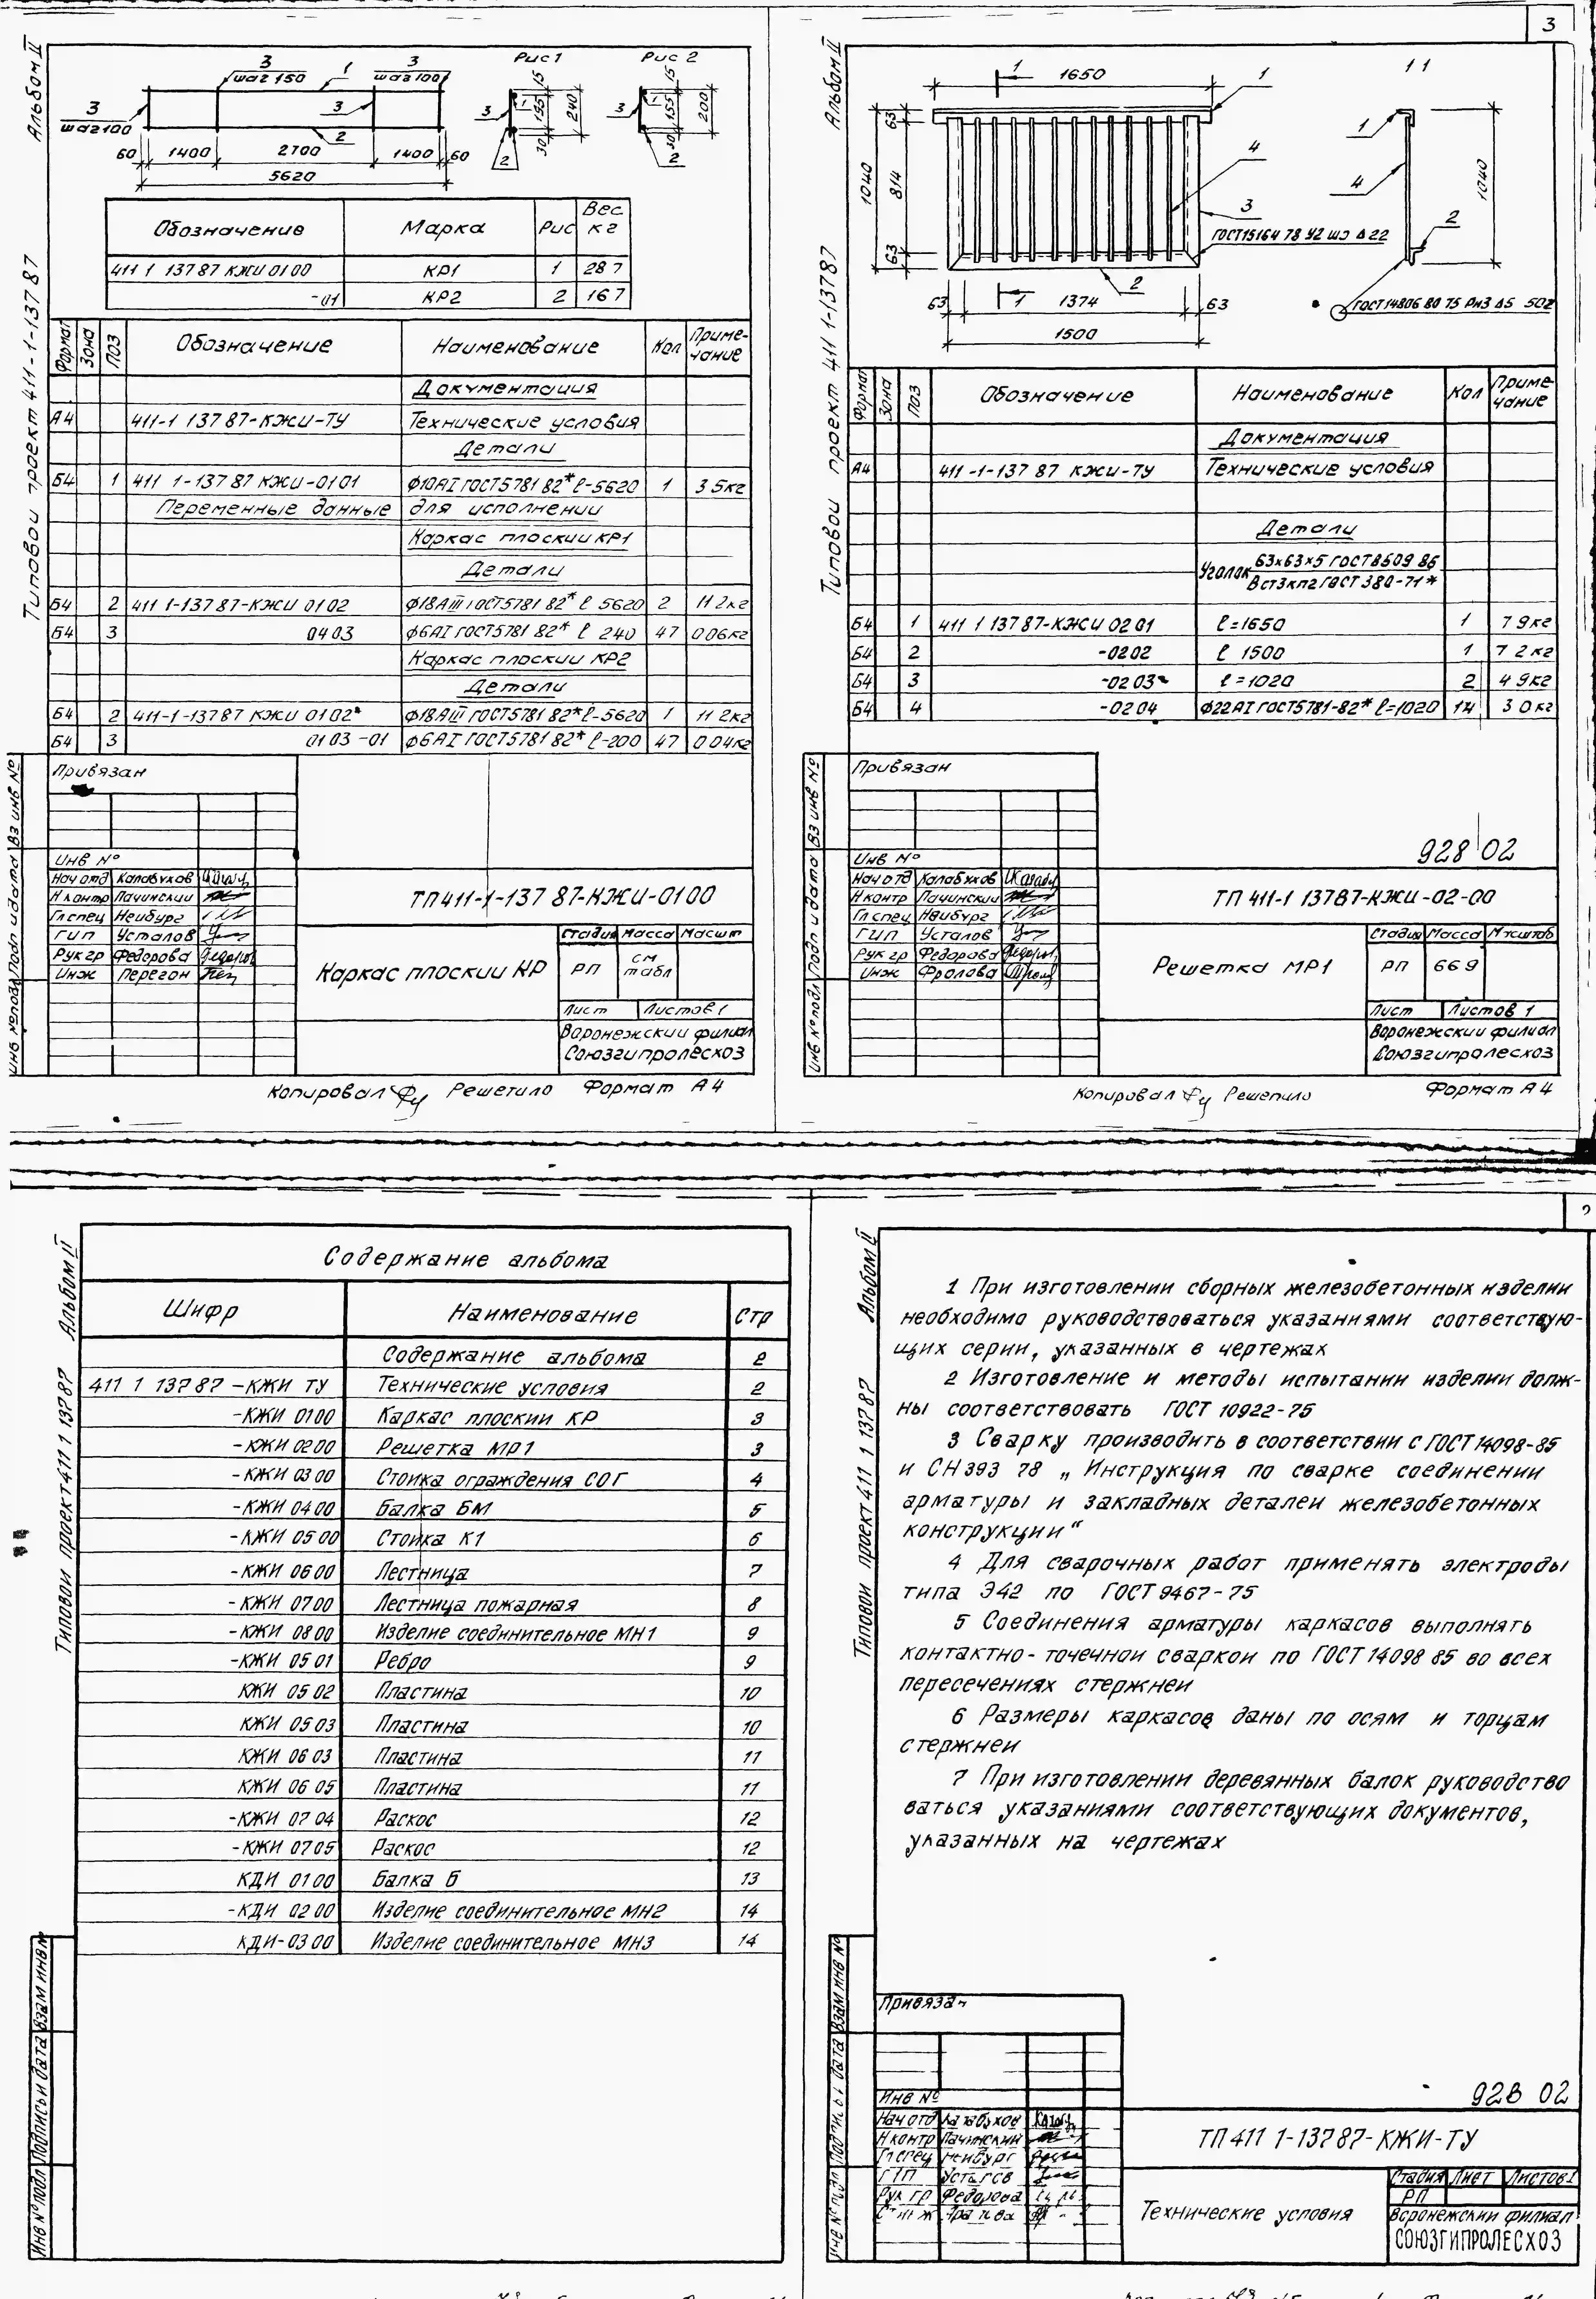 3
Альбом II
Типовой проект 411-1-137 87
3
шаг 150
1
3
шаг 100
3
шаг 100
3
2
60
1400
2700
1400
60
5620
Рис 1
3
1
2
15
195
30
240
Рис 2
3
1
2
15
155
30
200
Обозначение Марка Рис Вес кг
411 1 137 87 КЖИ 01 00 КР1 1 28 7
-01 КР2 2 16 7
Формат Зона Поз Обозначение Наименование Кол Приме-
чание
Документация
А4 411-1 137 87-КЖИ-ТУ Технические условия
Детали
Б4 1 411 1-137 87 КЖИ-01 01 ф10АI ГОСТ5781 82* ℓ-5620 1 3 5кг
Переменные данные для исполнении
Каркас плоскии КР1
Детали
Б4 2 411 1-137 87-КЖИ 01 02 ф18АIII ГОСТ5781 82* ℓ 5620 2 11 2кг
Б4 3 04 03 ф6АI ГОСТ5781 82* ℓ 240 47 0 06кг
Каркас плоскии КР2
Детали
Б4 2 411-1-137 87 КЖИ 01 02 ф18АIII ГОСТ5781 82* ℓ-5620 1 11 2кг
Б4 3 01 03 -01 ф6АI ГОСТ5781 82* ℓ-200 47 0 04кг
Привязан
Инв №
Нач отд Калабухов
Н контр Пачинскии
Гл спец Неибург
ГИП Усталов
Рук гр Федорова
Инж Перегон
Инв № подл Подп и дата Вз инв №
ТП411-1-137 87-КЖИ-01 00
Каркас плоскии КР
Стадия Масса Масшт
РП см
табл
Лист Листов 1
Воронежскии филиал
Союзгипролесхоз
Копировал Решетило Формат А4
Альбом II
Типовой проект 411 1-137 87
1
1650
1
63
814
63
1040
4
3
ГОСТ15164 78 У2 шэ Δ 22
2
63
1
1374
63
1500
1 1
1
4
2
1040
ГОСТ14806 80 Т5 Рн3 Δ5 50г
Формат Зона Поз Обозначение Наименование Кол Приме-
чание
Документация
А4 411 -1-137 87 КЖИ-ТУ Технические условия
Детали
Уголок 63х63х5 ГОСТ8509 86
Вст3кп2 ГОСТ 380-71*
Б4 1 411 1 137 87-КЖИ 02 01 ℓ=1650 1 7 9кг
Б4 2 -02 02 ℓ 1500 1 7 2кг
Б4 3 -02 03 ℓ=1020 2 4 9кг
Б4 4 -02 04 ф22АI ГОСТ5781-82* ℓ=1020 14 3 0кг
Привязан
928 02
Инв №
Нач отд Калабухов
Н контр Пачинскии
Гл спец Неибург
ГИП Усталов
Рук гр Федорова
Инж Фролова
Инв № подл Подп и дата Вз инв №
ТП 411-1 137 87-КЖИ-02-00
Решетка МР1
Стадия Масса Масштаб
РП 66 9
Лист Листов 1
Воронежскии филиал
Союзгипролесхоз
Копировал Решетило Формат А4
Альбом II
Типовой проект 411 1 137 87
Содержание альбома
Шифр Наименование Стр
Содержание альбома 2
411 1 137 87 -КЖИ ТУ Технические условия 2
-КЖИ 01 00 Каркас плоскии КР 3
-КЖИ 02 00 Решетка МР1 3
-КЖИ 03 00 Стоика ограждения СОГ 4
-КЖИ 04 00 Балка БМ 5
-КЖИ 05 00 Стоика К1 6
-КЖИ 06 00 Лестница 7
-КЖИ 07 00 Лестница пожарная 8
-КЖИ 08 00 Изделие соединительное МН1 9
-КЖИ 05 01 Ребро 9
КЖИ 05 02 Пластина 10
КЖИ 05 03 Пластина 10
КЖИ 06 03 Пластина 11
КЖИ 06 05 Пластина 11
-КЖИ 07 04 Раскос 12
-КЖИ 07 05 Раскос 12
КДИ 01 00 Балка Б 13
-КДИ 02 00 Изделие соединительное МН2 14
КДИ-03 00 Изделие соединительное МН3 14
Инв № подл Подпись и дата Взам инв №
Альбом II
Типовой проект 411 1 137 87
1 При изготовлении сборных железобетонных изделии
необходимо руководствоваться указаниями соответствую-
щих серии, указанных в чертежах
2 Изготовление и методы испытании изделии долж-
ны соответствовать ГОСТ 10922-75
3 Сварку производить в соответствии с ГОСТ 14098-85
и СН 393 78 „ Инструкция по сварке соединении
арматуры и закладных деталеи железобетонных
конструкции"
4 Для сварочных работ применять электроды
типа Э42 по ГОСТ 9467-75
5 Соединения арматуры каркасов выполнять
контактно-точечнои сваркои по ГОСТ 14098 85 во всех
пересечениях стержнеи
6 Размеры каркасов даны по осям и торцам
стержнеи
7 При изготовлении деревянных балок руководство
ваться указаниями соответствующих документов,
указанных на чертежах
Привязан
928 02
Инв №
Нач отд Калабухов
Н контр Пачинскии
Гл спец Неибург
ГИП Усталов
Рук гр Федорова
ТП 411 1-137 87-КЖИ-ТУ
Технические условия
Стадия Лист Листов 1
РП
Воронежскии филиал
СОЮЗГИПРОЛЕСХОЗ